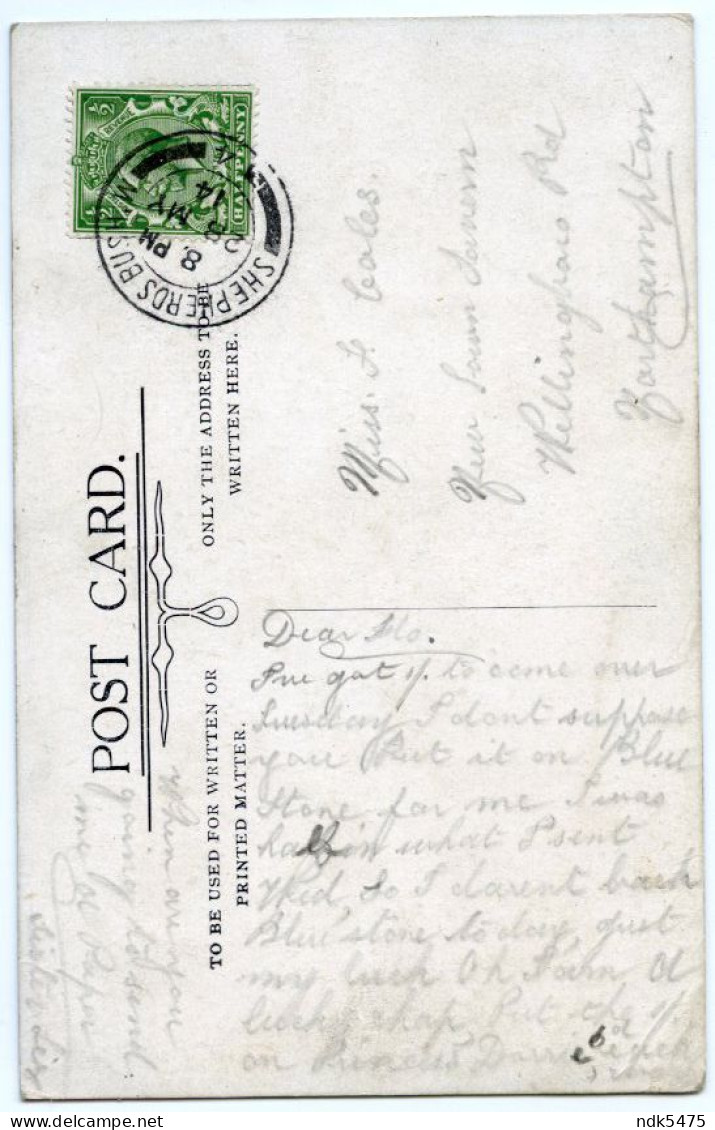 POST CARD.
TO BE USED FOR WRITTEN OR
PRINTED MATTER.
ONLY THE ADDRESS TO BE
WRITTEN HERE.
HALFPENNY
SHEPHERDS BUSH. W
8. PM
28 MY
14
Miss. F Coles.
New Town Tavern
Wellingboro Rd
Northampton
Dear Flo.
I've got 1/. to come over
Tuesday I dont suppose
you Put it on Blue
Stone for me I was
half in what I sent
Wed, So I darent back
Blue stone to day, just
my luck Oh I am a
lucky chap Put the 1/.
on Princess
When are you
going to send
me